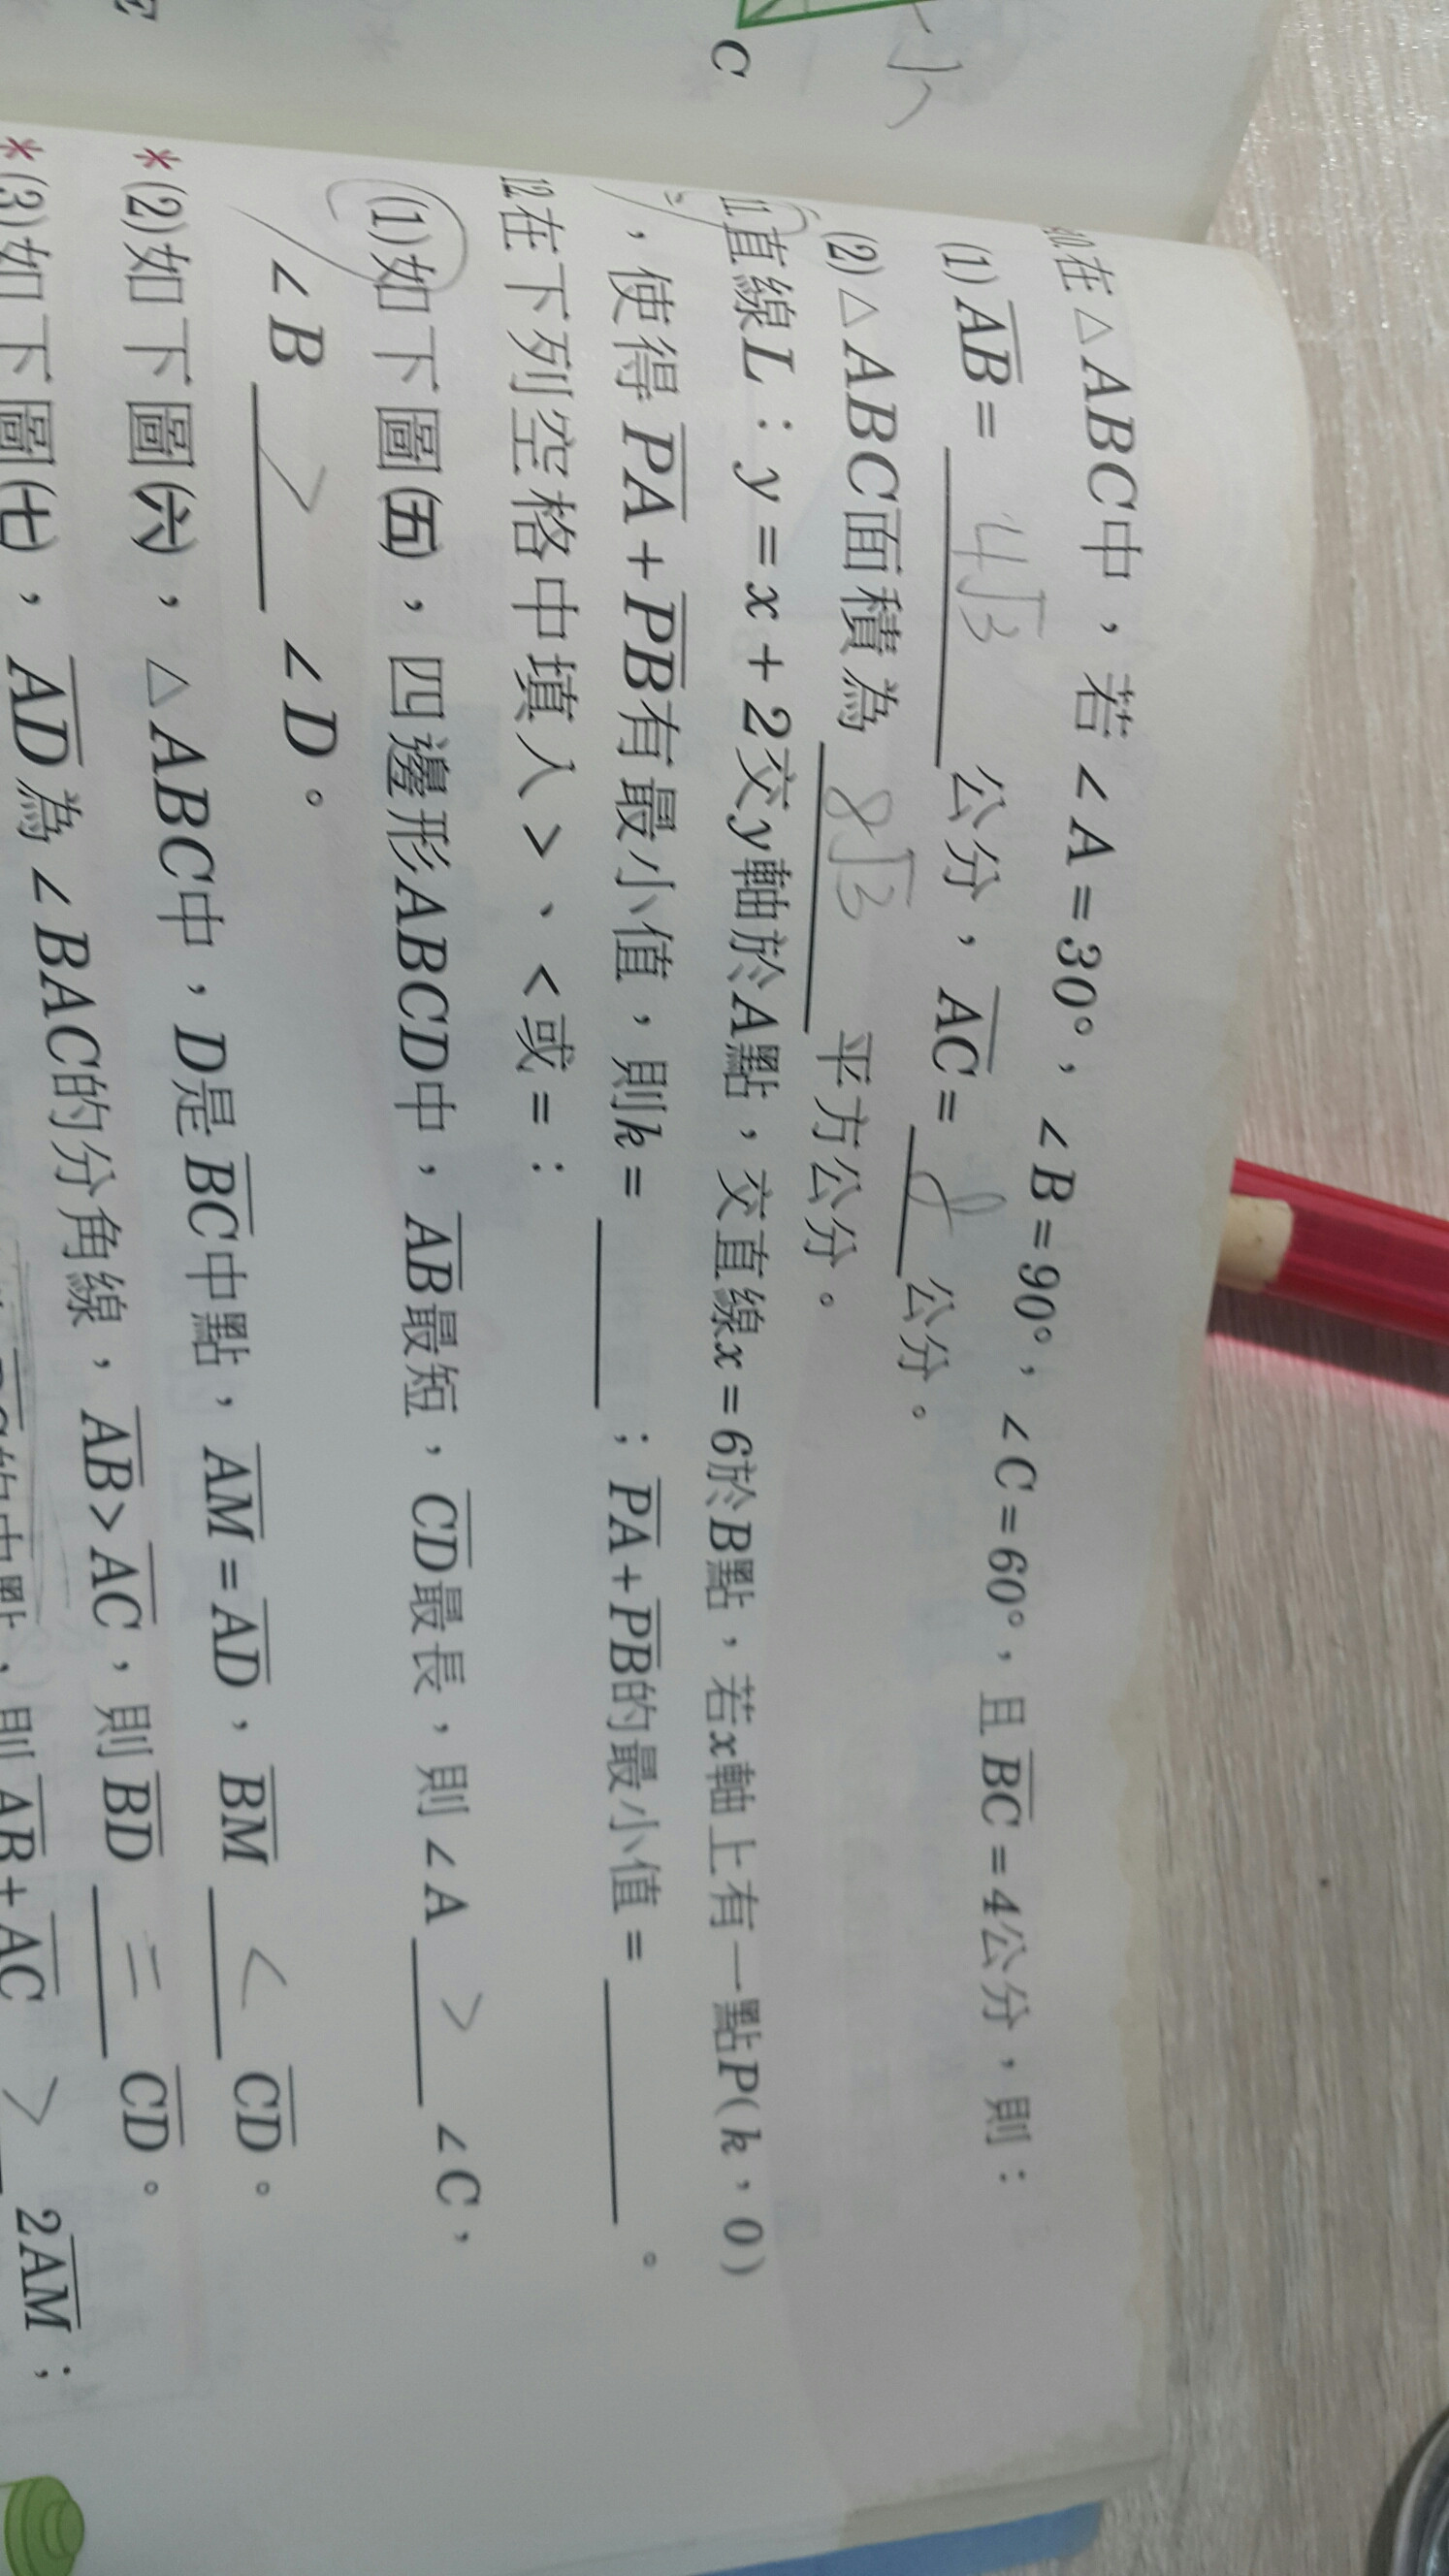 C
10.在△ABC中，若∠A=30°，∠B=90°，∠C=60°，且BC=4公分，則：
(1)AB= 4√3 公分，AC= 8 公分。
(2)△ABC面積為 8√3 平方公分。
11.直線L：y=x+2交y軸於A點，交直線x=6於B點，若x軸上有一點P(k，0)
，使得PA+PB有最小值，則k= ；PA+PB的最小值= 。
12.在下列空格中填入>、<或=：
(1)如下圖(五)，四邊形ABCD中，AB最短，CD最長，則∠A > ∠C，
∠B > ∠D。
*(2)如下圖(六)，△ABC中，D是BC中點，AM=AD，BM < CD。
*(3)如下圖(七)，AD為∠BAC的分角線，AB>AC，則BD = CD。
的中點，則AB+AC > 2AM；